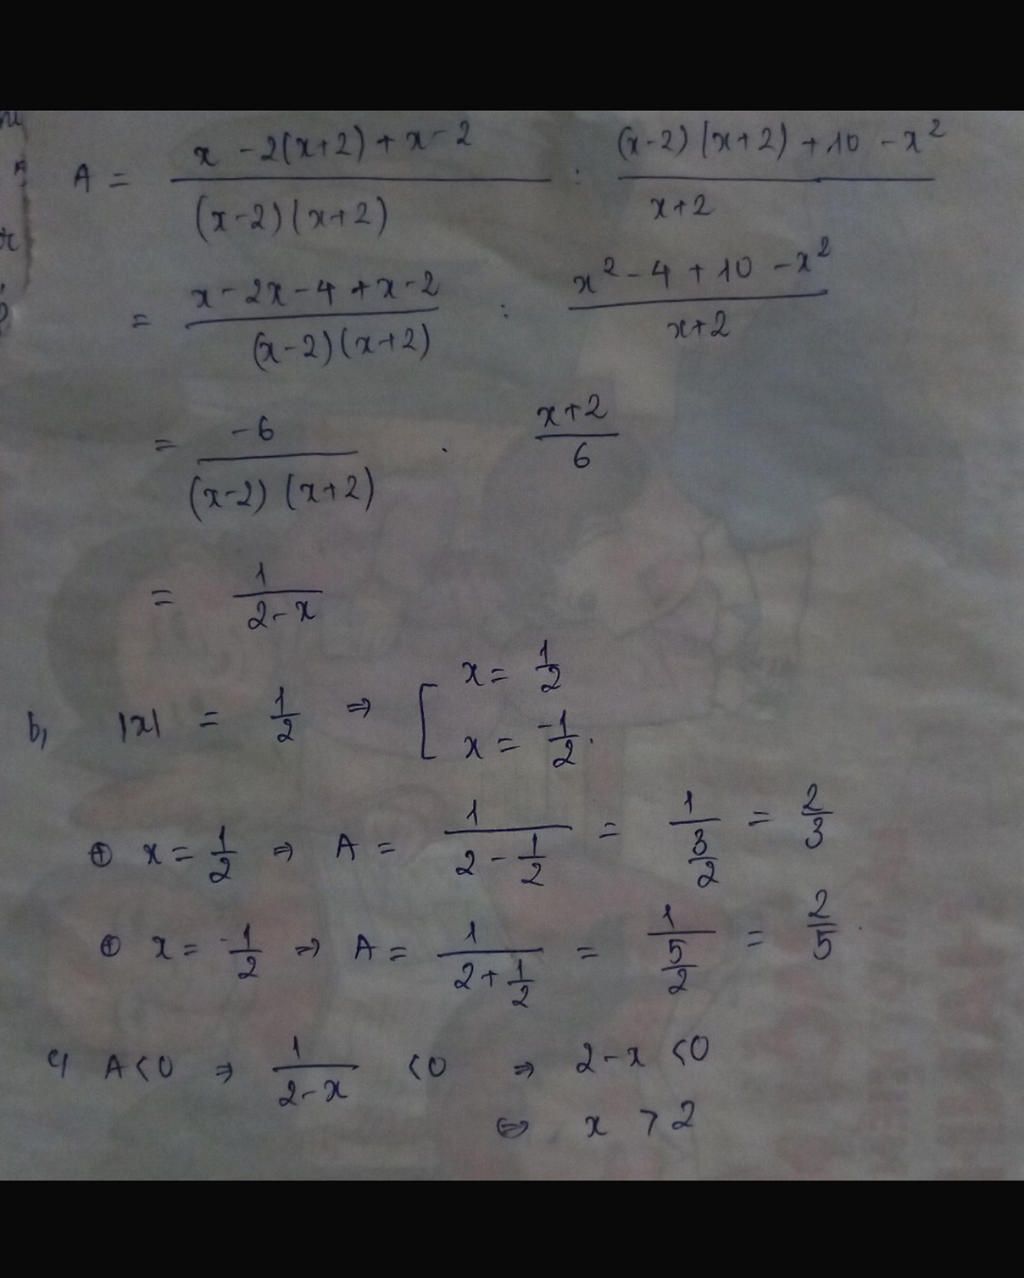 A = x - 2(x+2) + x - 2 / (x-2)(x+2) : (x-2)(x+2) + 10 - x² / x+2
= x - 2x - 4 + x - 2 / (x-2)(x+2) : x² - 4 + 10 - x² / x+2
= -6 / (x-2)(x+2) . x+2 / 6
= 1 / 2-x
b, |x| = 1/2 ⇒ [ x = 1/2
x = -1/2.
⊕ x = 1/2 ⇒ A = 1 / 2 - 1/2 = 1 / 3/2 = 2/3
⊕ x = -1/2 ⇒ A = 1 / 2 + 1/2 = 1 / 5/2 = 2/5.
c) A < 0 ⇒ 1 / 2-x < 0 ⇒ 2 - x < 0
⇔ x > 2